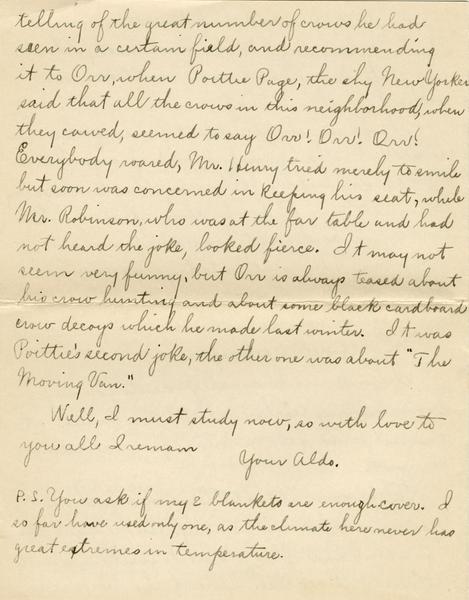 telling of the great number of crows he had
seen in a certain field, and recommending
it to Orr, when Poittie Page, the shy New Yorker
said that all the crows in this neighborhood, when
they cawed, seemed to say Orr! Orr! Orr!
Everybody roared, Mr. Henry tried merely to smile
but soon was concerned in keeping his seat, while
Mr. Robinson, who was at the far table and had
not heard the joke, looked fierce. It may not
seem very funny, but Orr is always teased about
his crow hunting and about some black cardboard
crow decoys which he made last winter. It was
Poittie's second joke, the other one was about "The
Moving Van."
Well, I must study now, so with love to
you all I remain
Your Aldo.
P.S. You ask if my 2 blankets are enough cover. I
so far have used only one, as the climate here never has
great extremes in temperature.